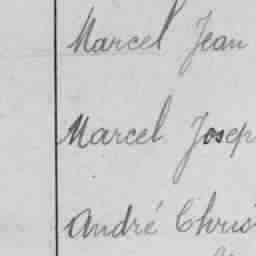 Marcel Jean
Marcel Josep
André Chris